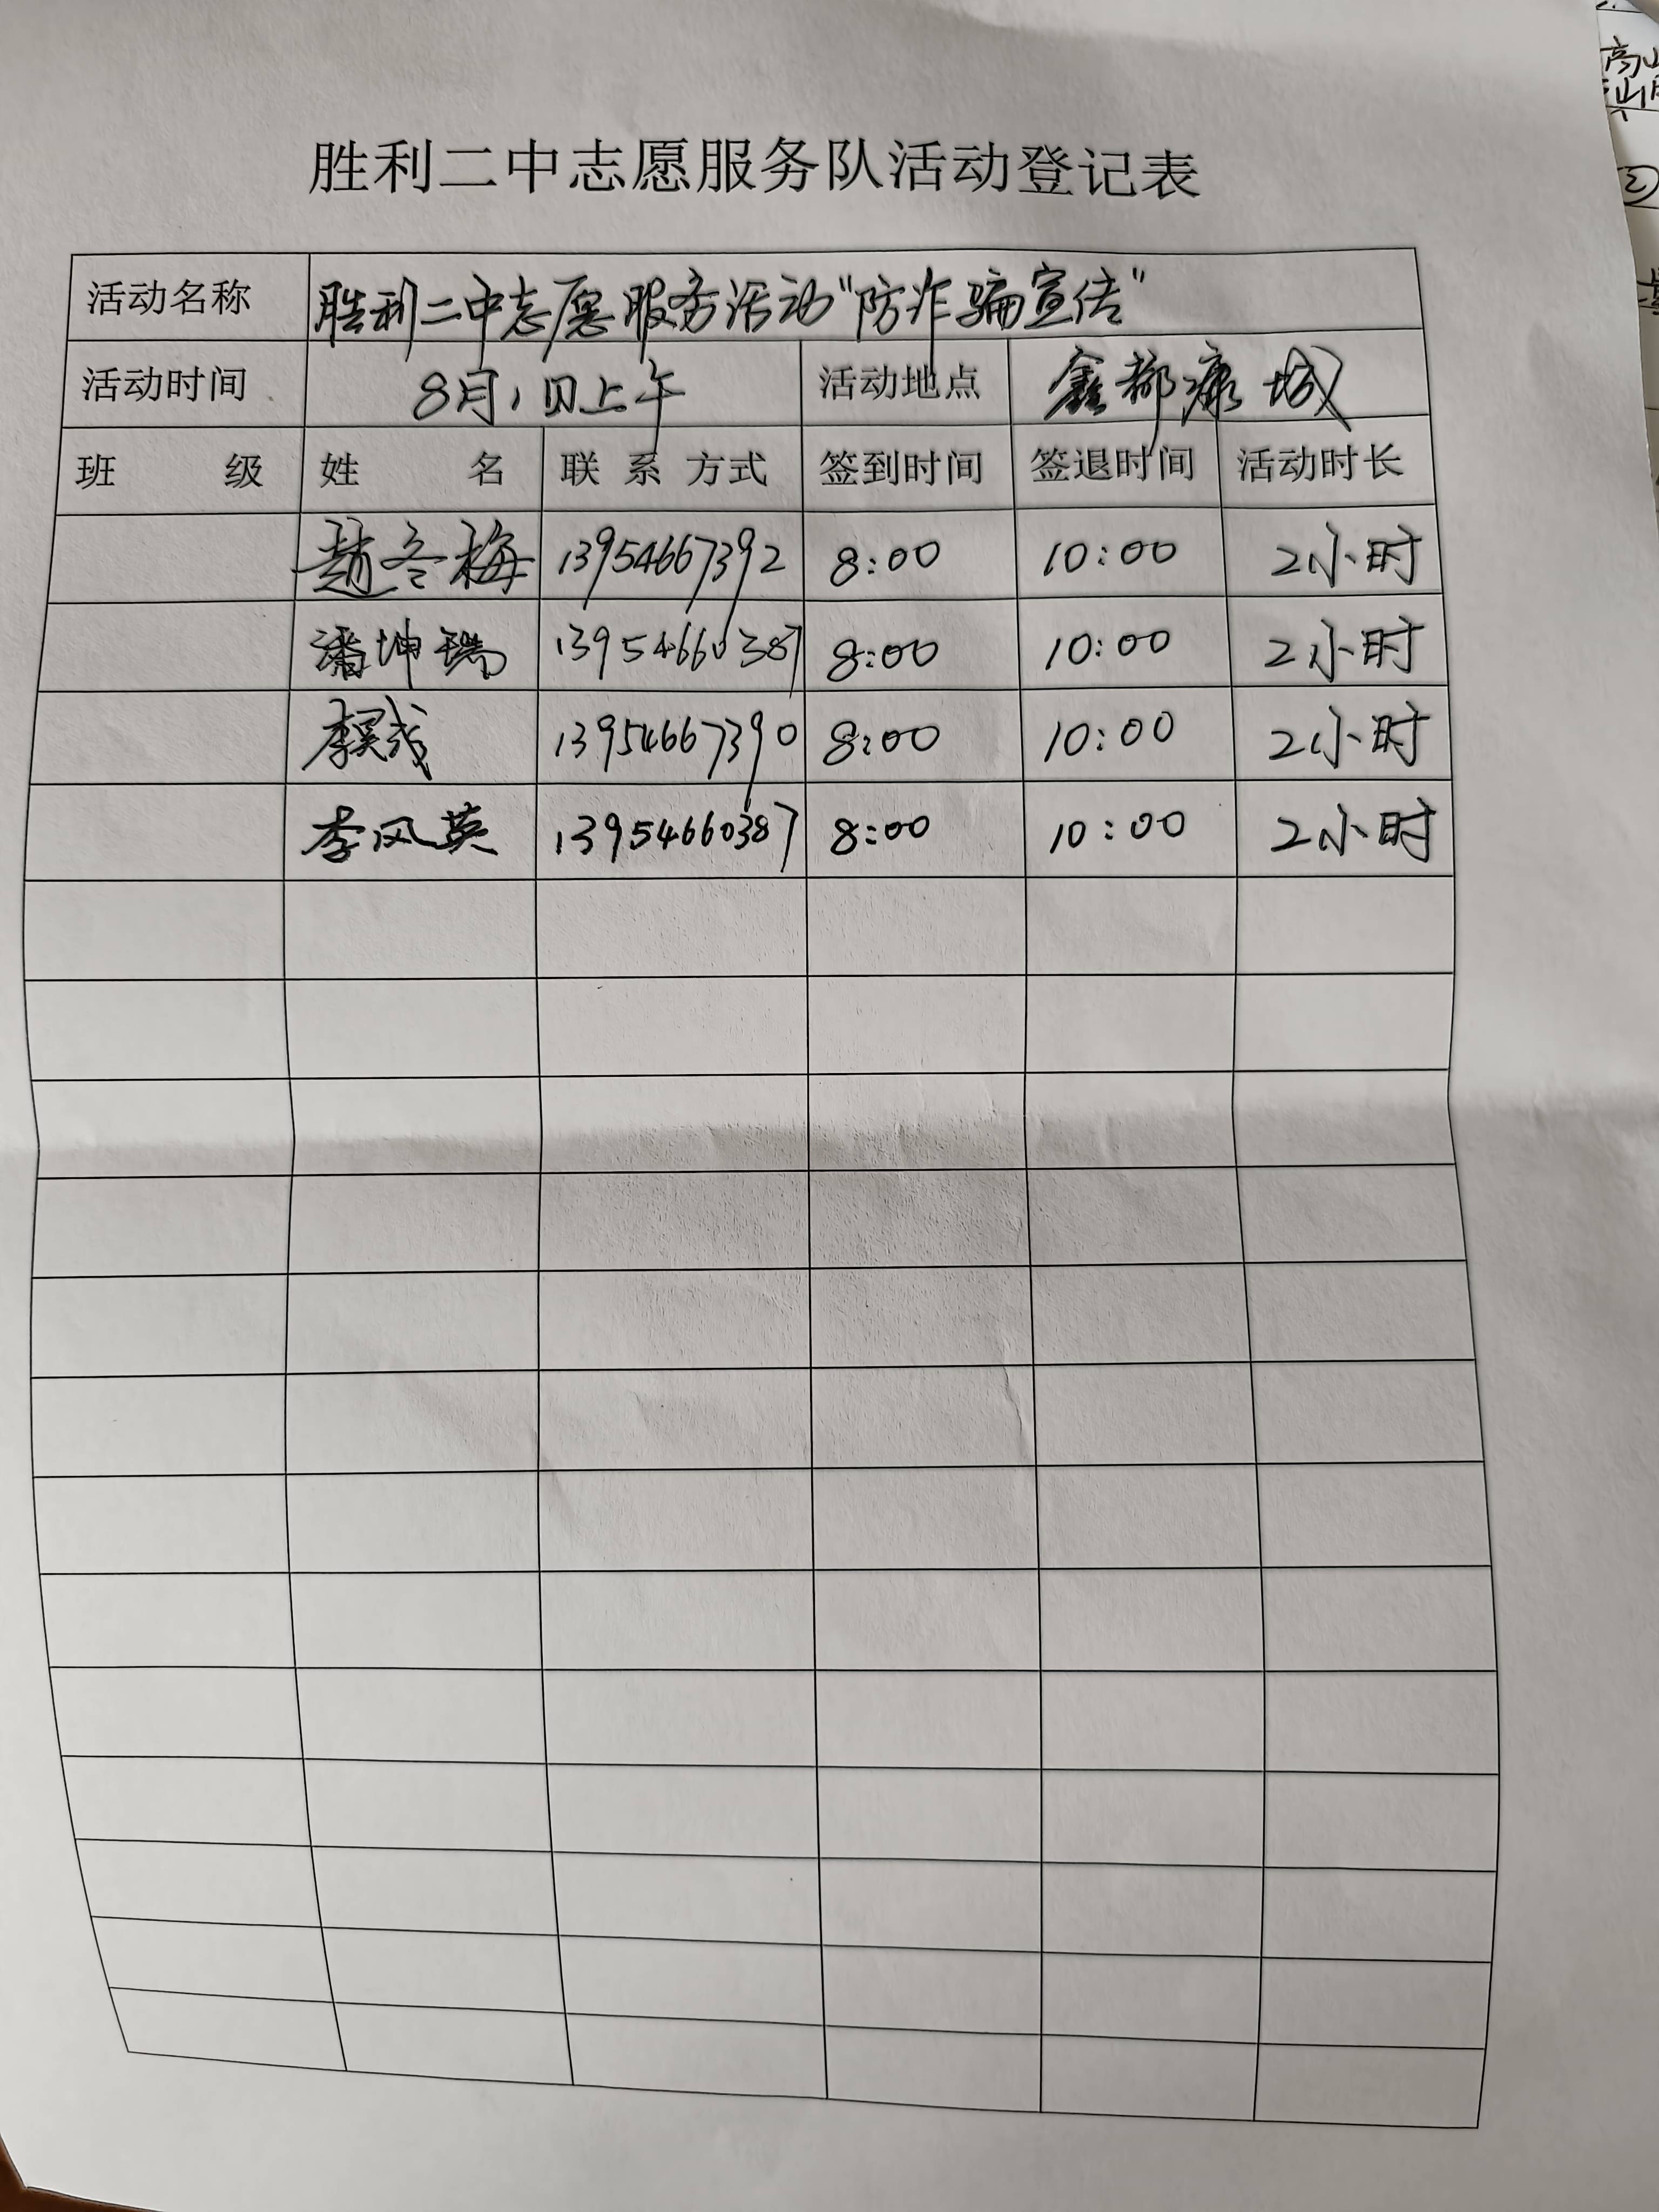 胜利二中志愿服务队活动登记表
活动名称 胜利二中志愿服务活动"防诈骗宣传"
活动时间 8月1日上午 活动地点 鑫都康城
班 级 姓 名 联 系 方式 签到时间 签退时间 活动时长
赵冬梅 13954667392 8:00 10:00 2小时
潘坤瑞 13954660387 8:00 10:00 2小时
李 13954667390 8:00 10:00 2小时
李风英 13954660387 8:00 10:00 2小时